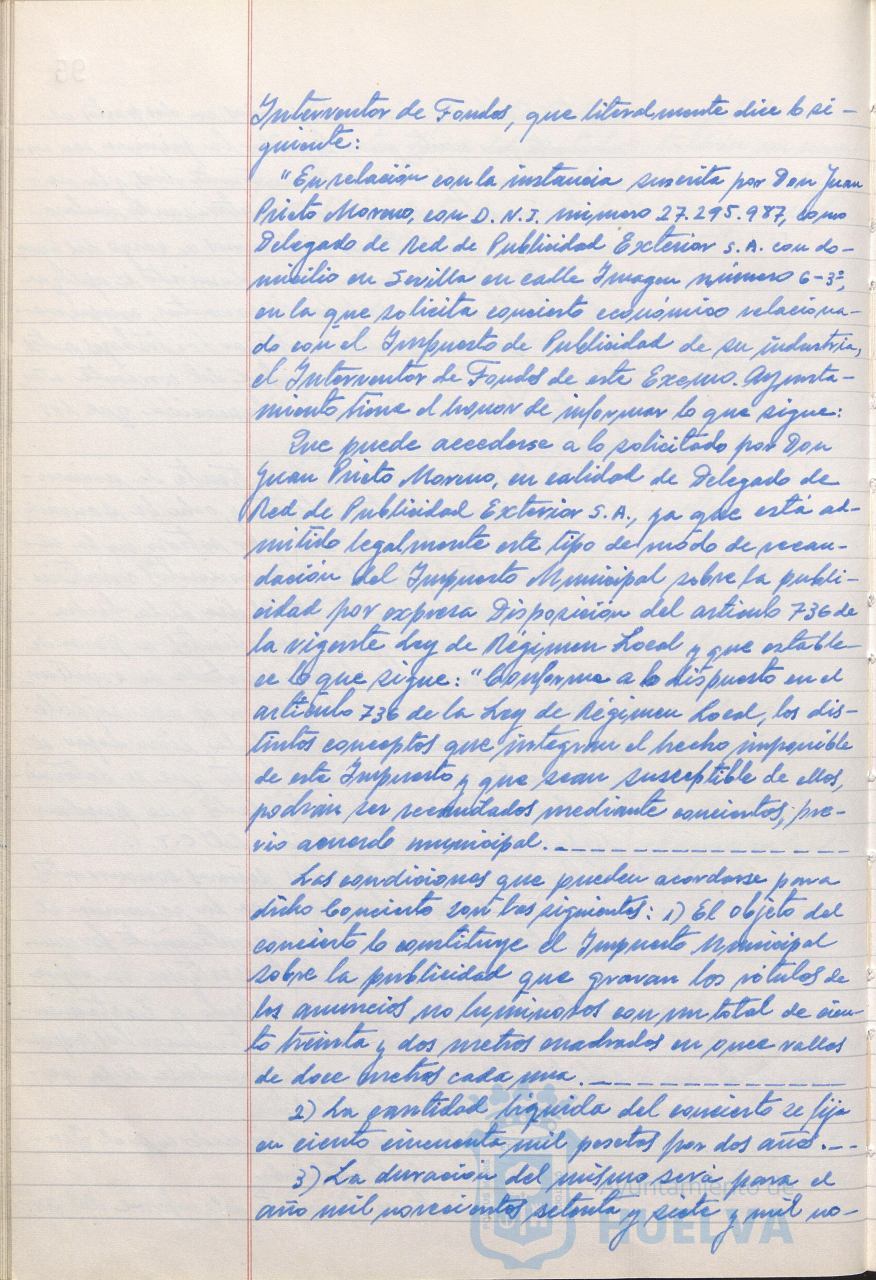 Interventor de Fondos, que literalmente dice lo si-
guiente:
"En relación con la instancia suscrita por Don Juan
Prieto Moreno, con D.N.I. número 27.295.987, como
Delegado de Red de Publicidad Exterior S.A. con do-
micilio en Sevilla en calle Imagen número 6-3º,
en la que solicita concierto económico relaciona-
do con el Impuesto de Publicidad de su industria,
el Interventor de Fondos de este Excmo. Ayunta-
miento tiene el honor de informar lo que sigue:
Que puede accederse a lo solicitado por Don
Juan Prieto Moreno, en calidad de Delegado de
Red de Publicidad Exterior S.A., ya que está ad-
mitido legalmente este tipo de modo de recau-
dación del Impuesto Municipal sobre la publi-
cidad por expresa Disposición del artículo 736 de
la vigente Ley de Régimen Local y que estable-
ce lo que sigue: "Conforme a lo dispuesto en el
artículo 736 de la Ley de Régimen Local, los dis-
tintos conceptos que integran el hecho imponible
de este Impuesto y que sean susceptible de ellos,
podrán ser recaudados mediante conciertos, pre-
vio acuerdo municipal.
Las condiciones que pueden acordarse para
dicho Concierto son las siguientes: 1) El objeto del
concierto lo constituye el Impuesto Municipal
sobre la publicidad que gravan los rótulos de
los anuncios no luminosos con un total de cien-
to treinta y dos metros cuadrados en once vallas
de doce metros cada una.
2) La cantidad líquida del concierto se fija
en ciento cincuenta mil pesetas por dos años.
3) La duración del mismo será para el
año mil novecientos setenta y siete y mil no-
Ayuntamiento de
HUELVA